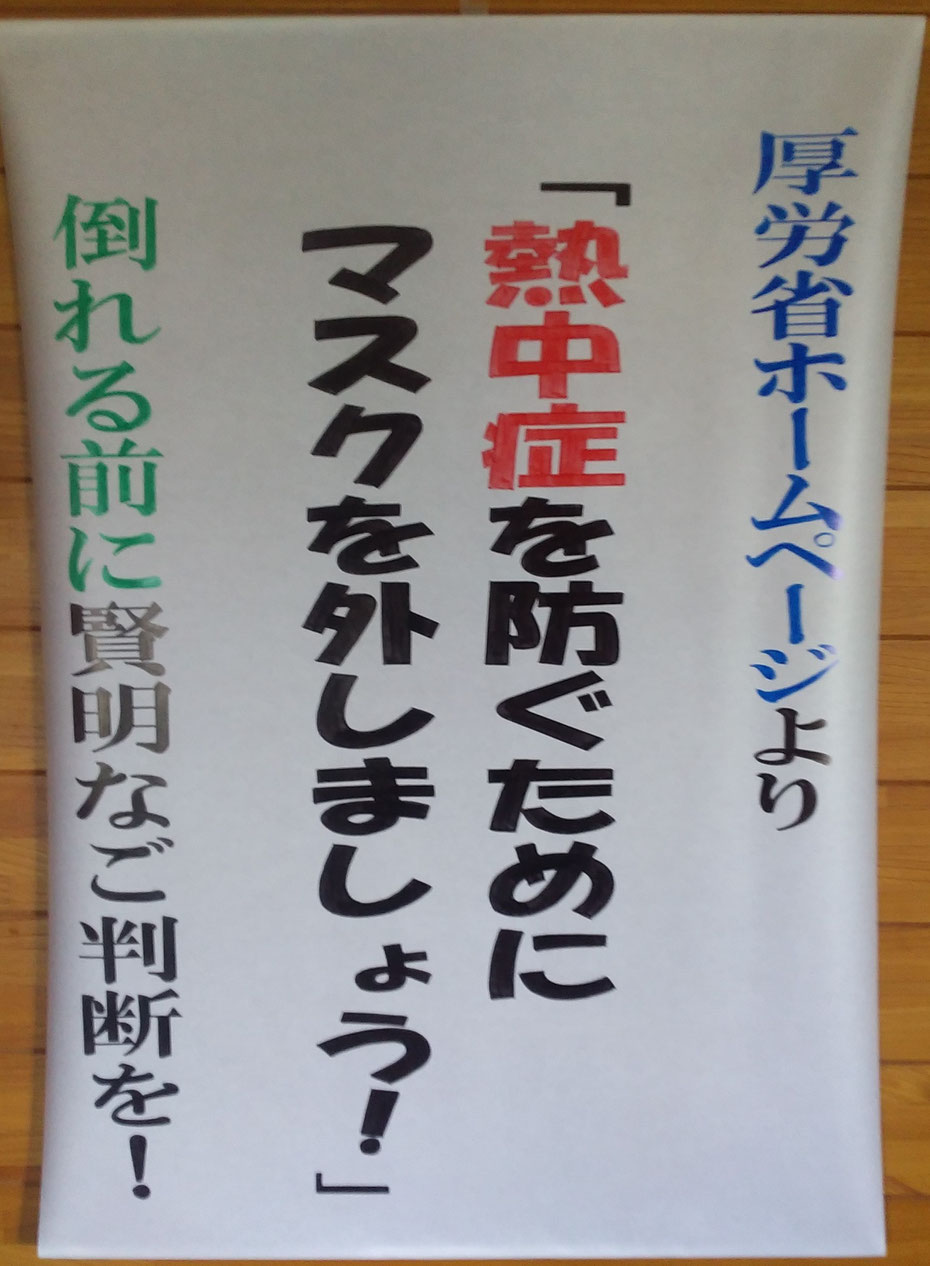 厚労省ホームページより
「熱中症を防ぐために
マスクを外しましょう！」
倒れる前に賢明なご判断を！